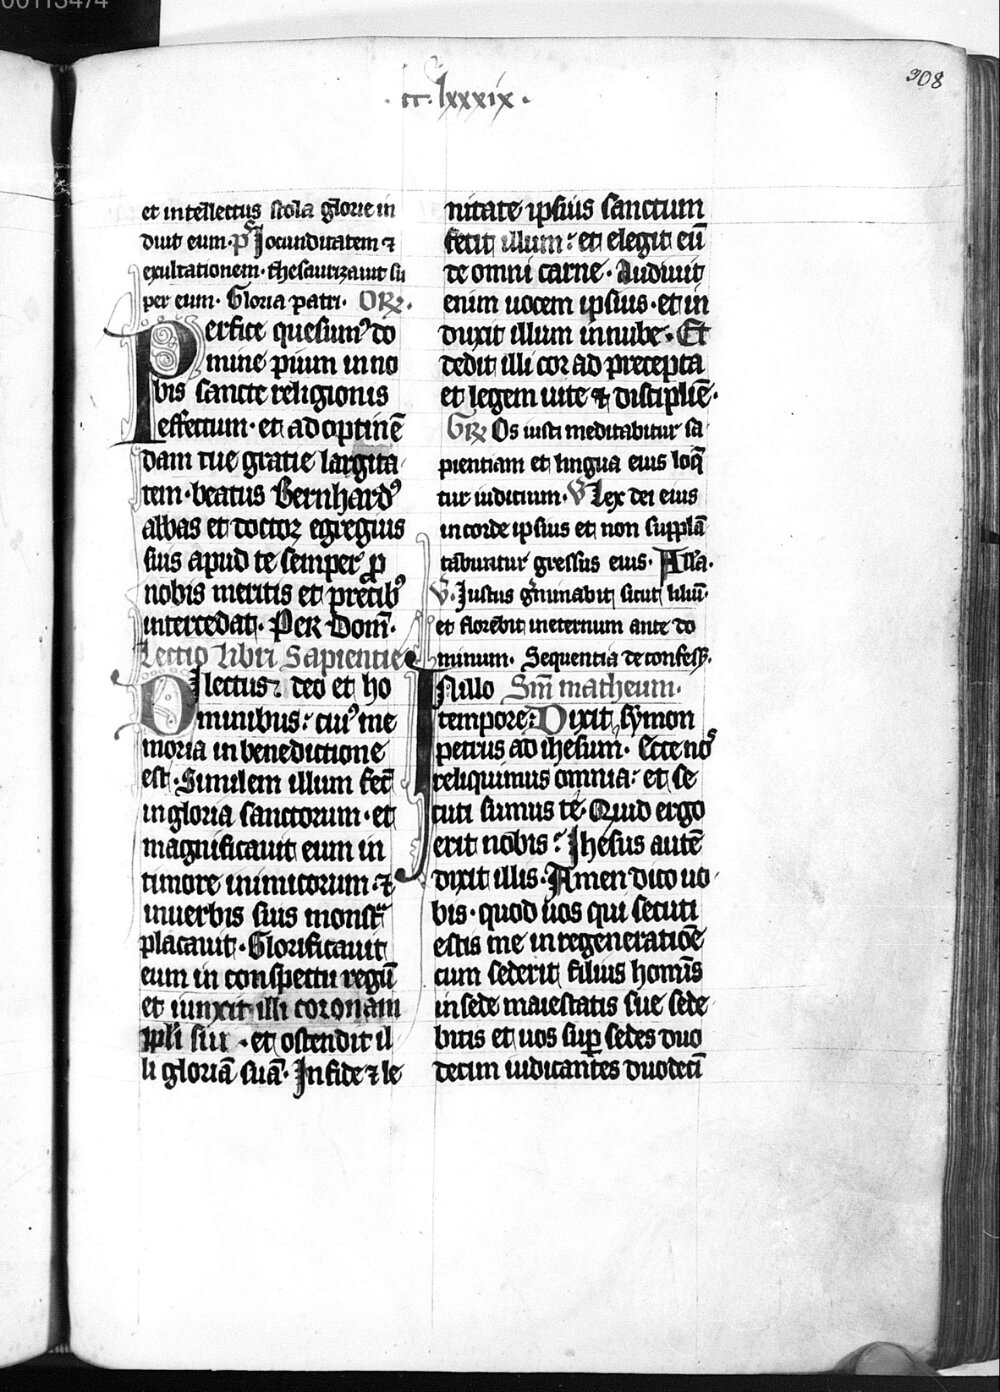 00113474
308
· cc · lxxxix ·
et intellectus stola glorie in
duit eum · ps Iocunditatem ⁊
exultationem · thesaurizauit su
per eum · Gloria patri · Or̄
Perfice quesumꝰ do
mine pium in no
bis sancte religionis
effectum · et ad optinē
dam tue gratie largita
tem · beatus Bernhardꝰ
abbas et doctor egregius
suis apud te semper ꝓ
nobis meritis et precibꝰ
intercedat · Per Dom̄ ·
Lectio libri Sapientie
Dilectus deo et ho
minibus : cuiꝰ me
moria in benedictione
est · Similem illum fecit
in gloria sanctorum · et
magnificauit eum in
timore inimicorum · ⁊
in uerbis suis monstra
placauit · Glorificauit
eum in conspectu regū
et iunxit illi coronam
ppli sui · et ostendit il
li gloriā suā · In fide ⁊ le
nitate ipsius sanctum
fecit illum : et elegit eū
de omni carne · Audiuit
enim uocem ipsius · et in
duxit illum in nube · Et
dedit illi cor ad precepta
et legem uite ⁊ discipline ·
Gr̄ Os iusti meditabitur sa
pientiam et lingua eius loq̄
tur iudicium · V Lex dei eius
in corde ipsius et non supplā
tabuntur gressus eius · Alla ·
V · Iustus g̃minabit sicut liliū ·
et florebit in eternum ante do
minum · Sequentia de confess̄ ·
In illo Sm̄ matheum ·
tempore : Dixit symon
petrus ad ihesum · Ecce nos
reliquimus omnia : et se
cuti sumus te · Quid ergo
erit nobis : Ihesus autē
dixit illis · Amen dico uo
bis · quod uos qui secuti
estis me in regeneratiōe
cum sederit filius hominis
in sede maiestatis sue sede
bitis et uos suꝑ sedes duo
decim iudicantes duodeci